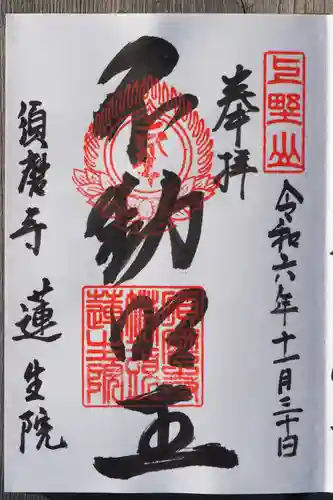 上野山
奉拝
令和六年十一月三十日
不動明王
須磨寺 蓮生院